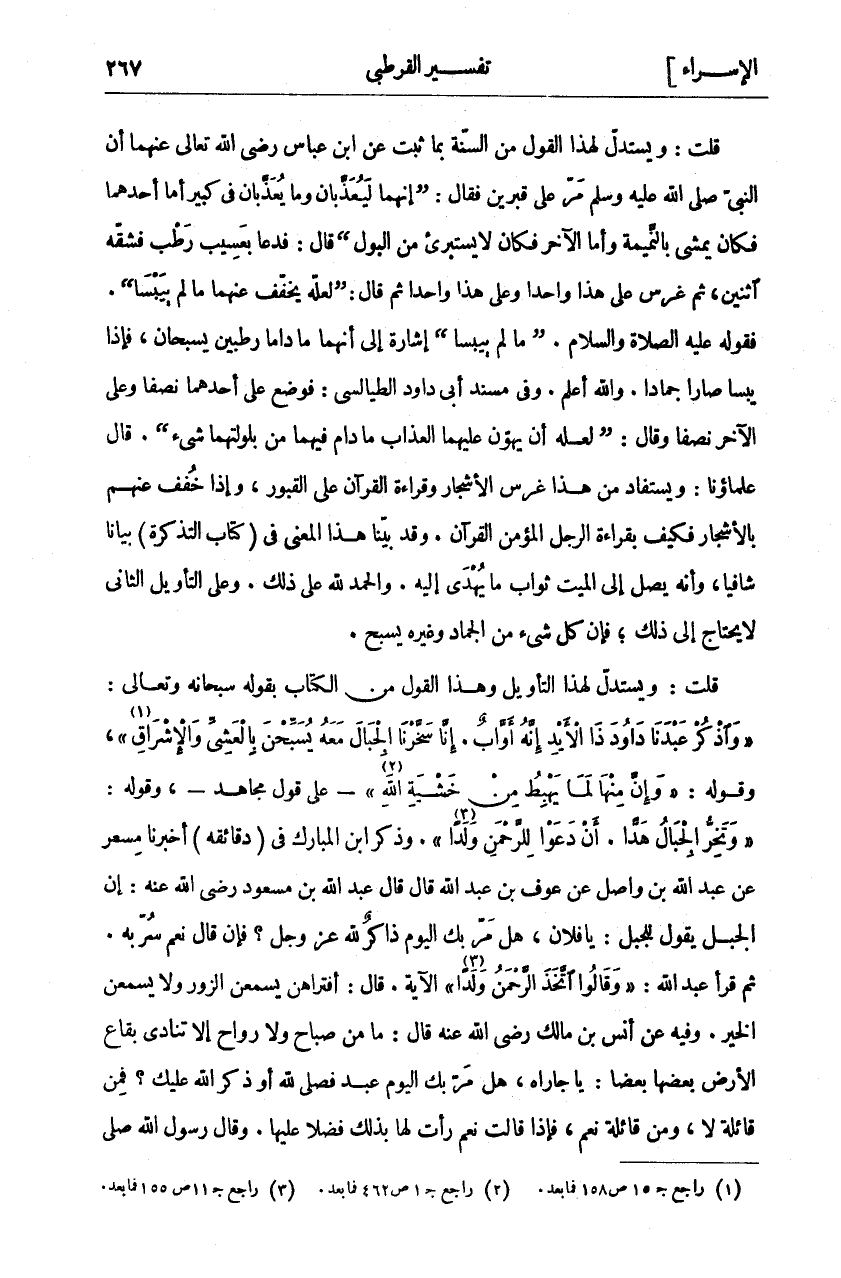 الإســراء ] تفســير القرطبى ٢٦٧
قلت : ويستدلّ لهذا القول من السنّة بما ثبت عن ابن عباس رضى الله تعالى عنهما أن
النبىّ صلى الله عليه وسلم مَرّ على قبرين فقال : ”إنهما لَيُعَذَّبان وما يُعَذَّبان فى كبير أما أحدهما
فكان يمشى بالنَّميمة وأما الآخر فكان لايستبرئ من البول“ قال : فدعا بعَسِيب رَطْب فشقّه
ٱثنين، ثم غرس على هذا واحدا وعلى هذا واحدا ثم قال : ”لعلّه يخفّف عنهما ما لم يَيْبَسَا“ .
فقوله عليه الصلاة والسلام . ” ما لم ييبسا “ إشارة إلى أنهما ماداما رطبين يسبحان ، فإذا
يبسا صارا جمادا . والله أعلم . وفى مسند أبى داود الطيالسى : فوضع على أحدهما نصفا وعلى
الآخر نصفا وقال : ” لعـله أن يهوّن عليهما العذاب مادام فيهما من بلولتهما شىء“ . قال
علماؤنا : ويستفاد من هـذا غرس الأشجار وقراءة القرآن على القبور ، وإذا خُفف عنهـم
بالأشجار فكيف بقراءة الرجل المؤمن القرآن . وقد بيّنا هـذا المعنى فى (كتاب التذكرة) بيانا
شافيا، وأنه يصل إلى الميت ثواب مايُهْدَى إليه . والحمد لله على ذلك . وعلى التأويل الثانى
لايحتاج إلى ذلك ؛ فإن كل شىء من الجماد وغيره يسبح .
قلت : ويستدلّ لهذا التأويل وهـذا القول من الكتاب بقوله سبحانه وتعـالى :
« وَٱذْكُرْ عَبْدَنَا دَاوُدَ ذَا الْأَيْدِ إِنَّهُ أَوَّابٌ . إِنَّا سَخَّرْنَا الْجِبَالَ مَعَهُ يُسَبِّحْنَ بِالْعَشِىِّ وَالْإِشْرَاقِ (١) » ،
وقـوله : « وَإِنَّ مِنْهَا لَمَـا يَهْبِطُ مِنْ خَشْيَةِ اللهِ (٢) » — على قول مجاهـد — ، وقوله :
« وَتَخِرُّ الْجِبَالُ هَدًّا . أَنْ دَعَوْا لِلرَّحْمَنِ وَلَدًا (٣) » . وذكر ابن المبارك فى ( دقائقه ) أخبرنا مِسعر
عن عبد الله بن واصل عن عوف بن عبد الله قال قال عبد الله بن مسعود رضى الله عنه : إن
الجبـل يقول للجبل : يافلان ، هل مَرّ بك اليوم ذاكرٌ لله عز وجل ؟ فإن قال نعم سُرّ به .
ثم قرأ عبد الله : « وَقَالُوا ٱتَّخَذَ الرَّحْمَنُ وَلَدًا (٣) » الآية . قال : أفتراهن يسمعن الزور ولا يسمعن
الخير . وفيه عن أنس بن مالك رضى الله عنه قال : ما من صباح ولا رواح إلا تنادى بقاع
الأرض بعضها بعضا : ياجاراه ، هل مَرّ بك اليوم عبـد فصلى لله أو ذكر الله عليك ؟ فمن
قائلة لا ، ومن قائلة نعم ، فإذا قالت نعم رأت لها بذلك فضلا عليها . وقال رسول الله صلى
(١) راجع جـ ١٥ ص ١٥٨ فما بعد . (٢) راجع جـ ١ ص ٤٦٢ فما بعد . (٣) راجع جـ ١١ ص ١٥٥ فما بعد .